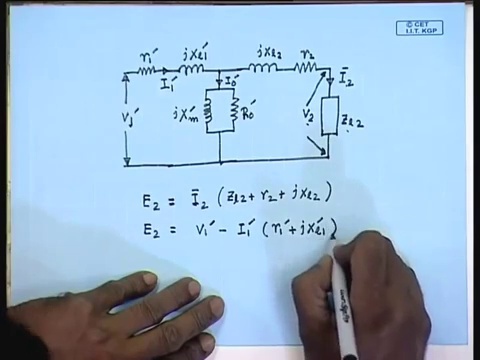 © CET
I.I.T. KGP
r₁′ jxₗ₁′ jxₗ₂ r₂
I₁′ I₀′ Ī₂
V₁′ jXₘ′ R₀′ V₂ Zₗ₂
E₂ = Ī₂ (Zₗ₂ + r₂ + jxₗ₂)
E₂ = V₁′ - I₁′ (r₁′ + jxₗ₁′)